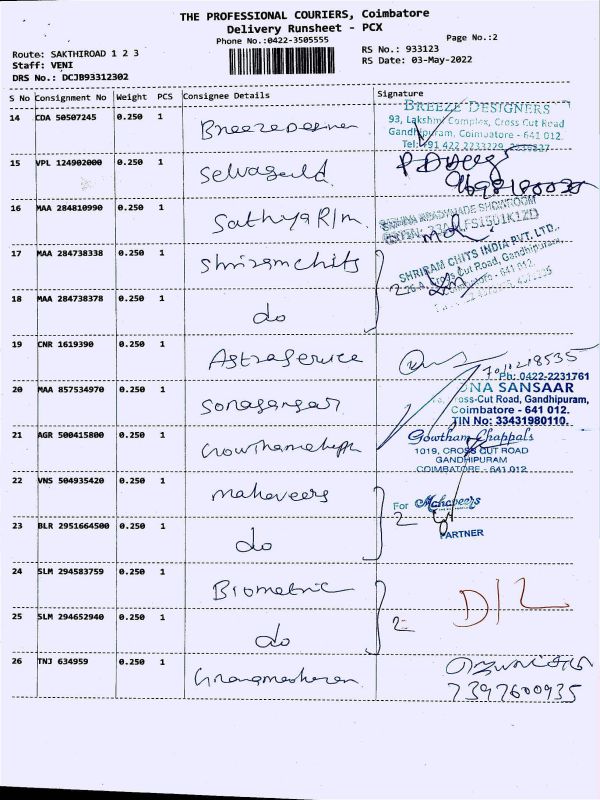 THE PROFESSIONAL COURIERS, Coimbatore
Delivery Runsheet - PCX
Phone No.:0422-3505555
Page No.:2
Route: SAKTHIROAD 1 2 3
Staff: VENI
DRS No.: DCJB93312302
RS No.: 933123
RS Date: 03-May-2022
S No Consignment No Weight PCS Consignee Details Signature
14 CDA 50507245 0.250 1
BREEZE DESIGNERS
93, Lakshmi Complex, Cross Cut Road
Gandhipuram, Coimbatore - 641 012.
15 VPL 124902000 0.250 1
16 MAA 284810990 0.250 1 Sathya R/m
READYMADE SHOWROOM
17 MAA 284738338 0.250 1 Shriramchits
SHRIRAM CHITS INDIA PVT. LTD.,
226-A, Cross Cut Road, Gandhipuram,
Coimbatore - 641 012.
2
18 MAA 284738378 0.250 1 do
19 CNR 1619390 0.250 1 Astraservice
Ph: 0422-2231761
20 MAA 857534970 0.250 1
SANSAAR
Cross-Cut Road, Gandhipuram,
Coimbatore - 641 012.
TIN No: 33431980110.
21 AGR 500415800 0.250 1
Gowtham Chappals
1019, CROSS CUT ROAD
GANDHIPURAM
COIMBATORE - 641 012
22 VNS 504935420 0.250 1 mahaveers
For Mahaveers
2
PARTNER
23 BLR 2951664500 0.250 1 do
24 SLM 294583759 0.250 1 Biometric
D/L
25 SLM 294652940 0.250 1 do
2
26 TNJ 634959 0.250 1
7397600935